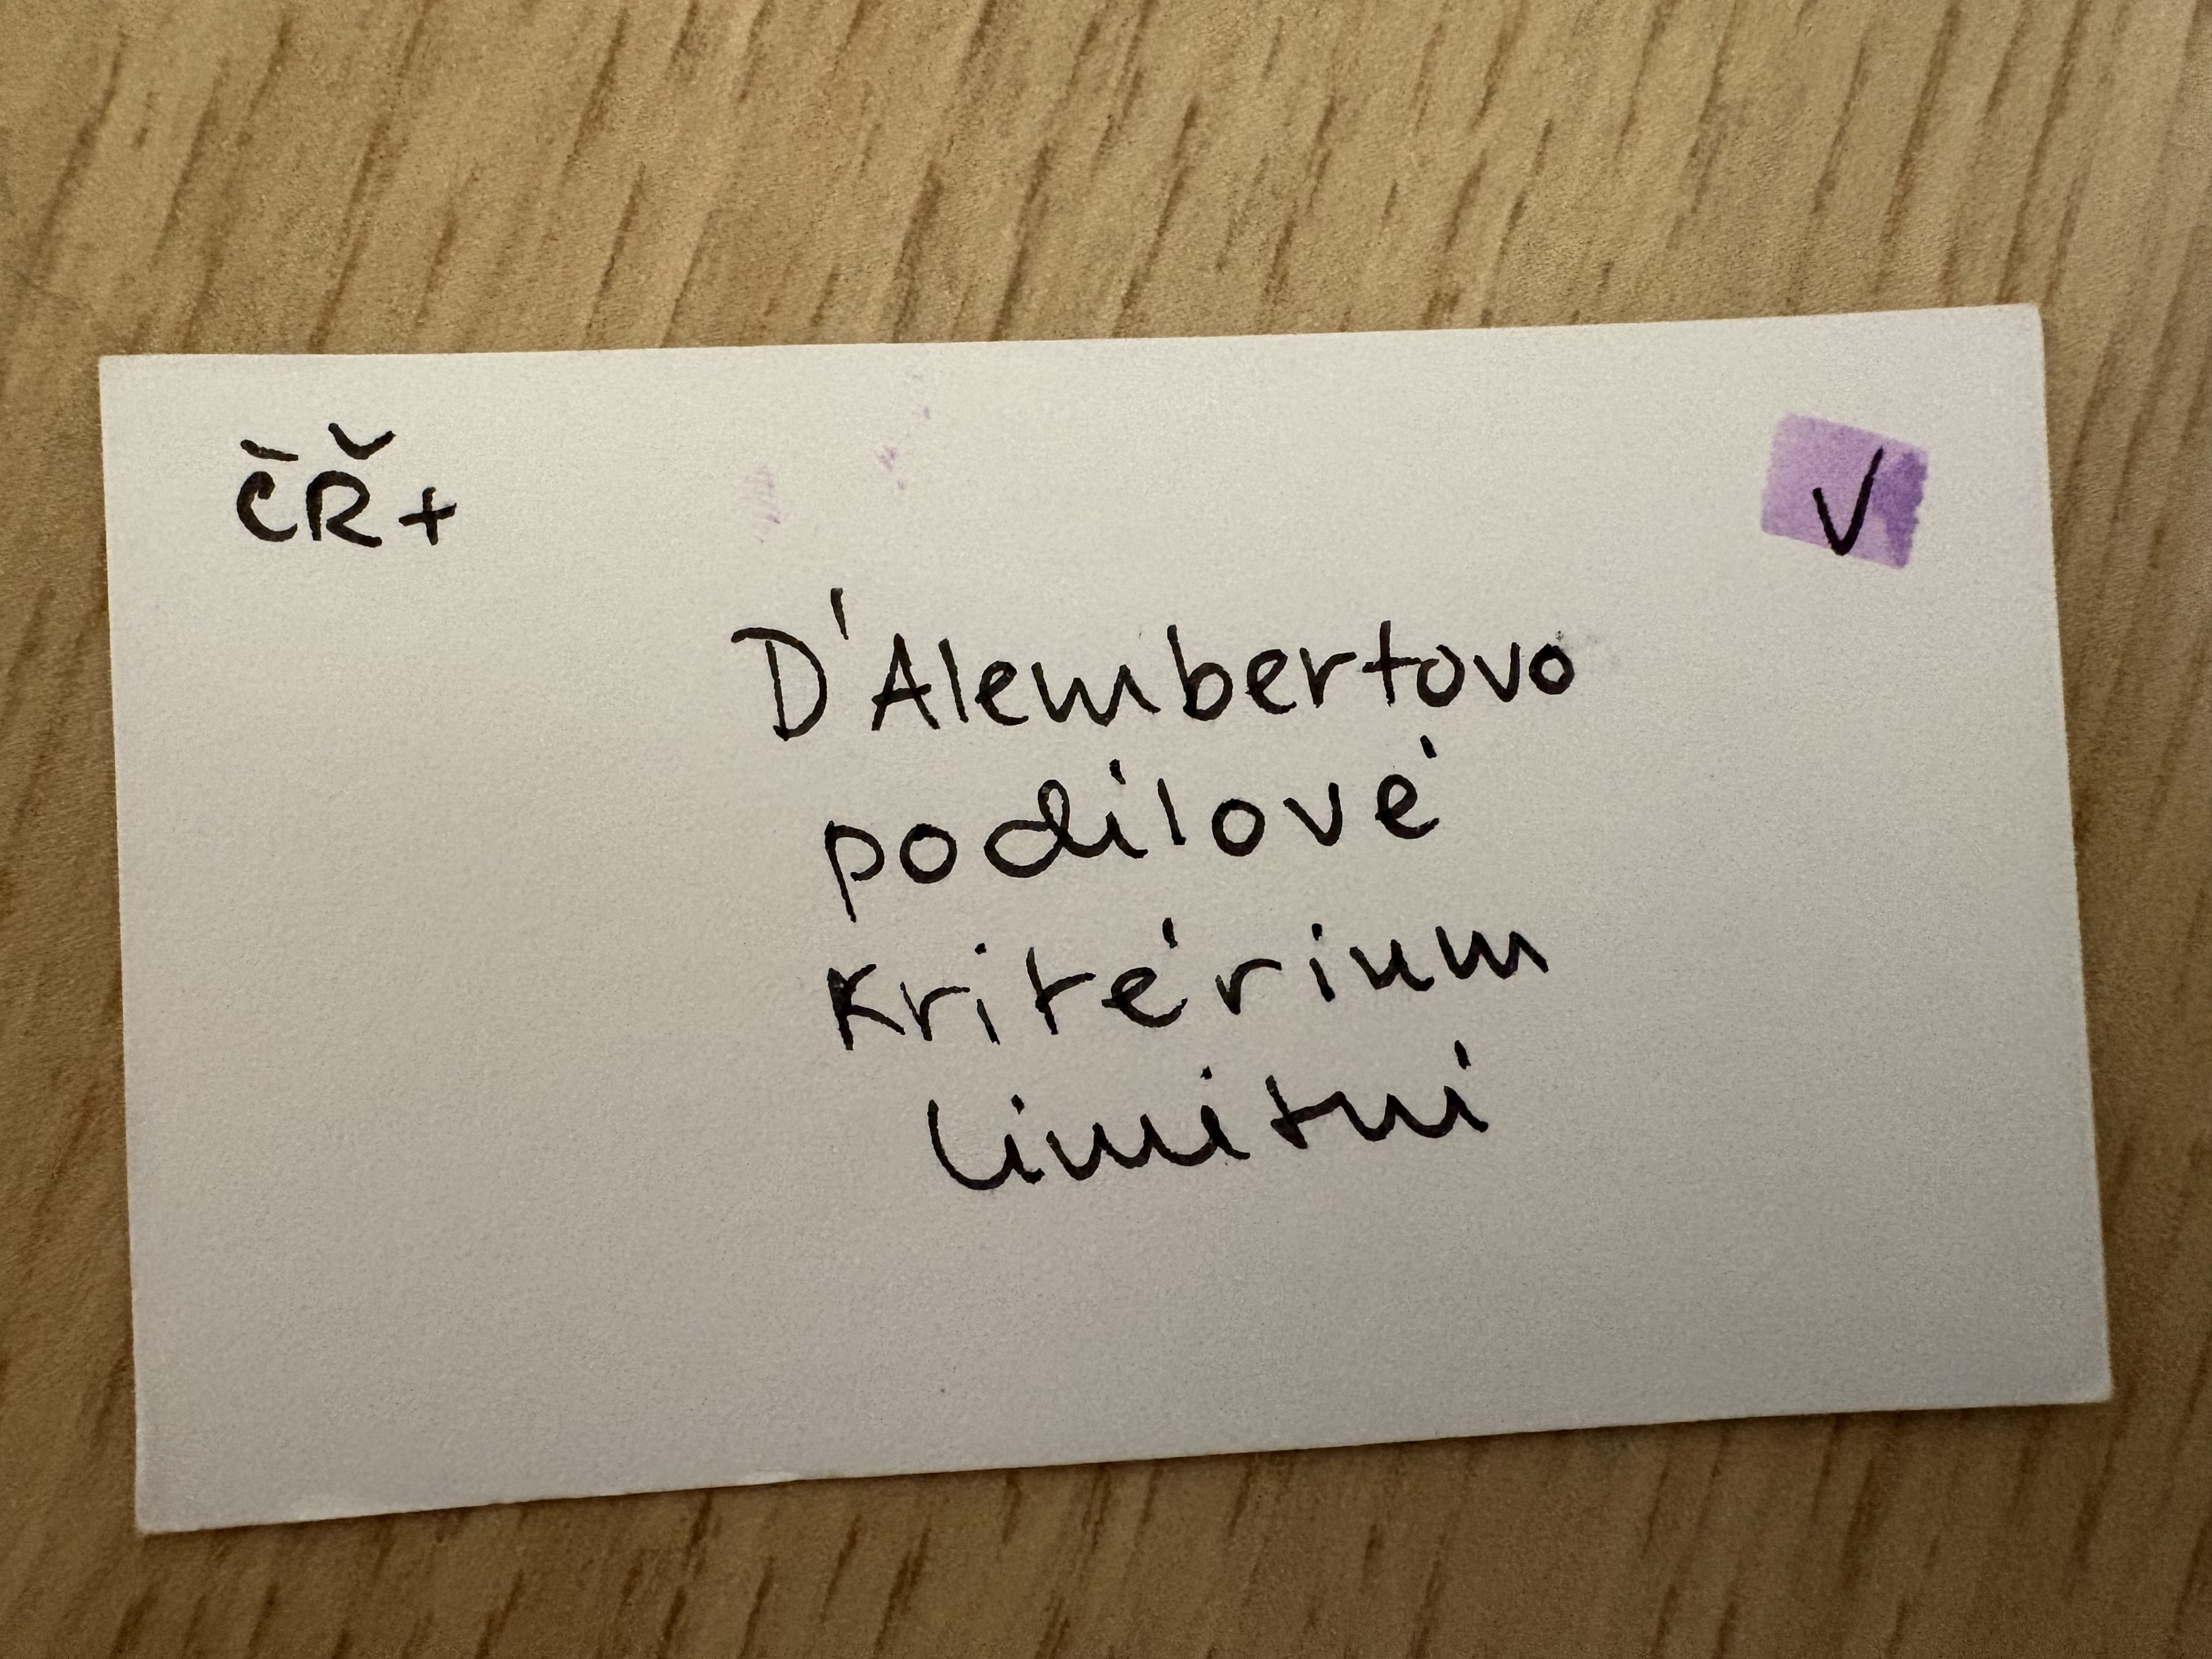 ČŘ+
V
D'Alembertovo
podílové
kritérium
limitní